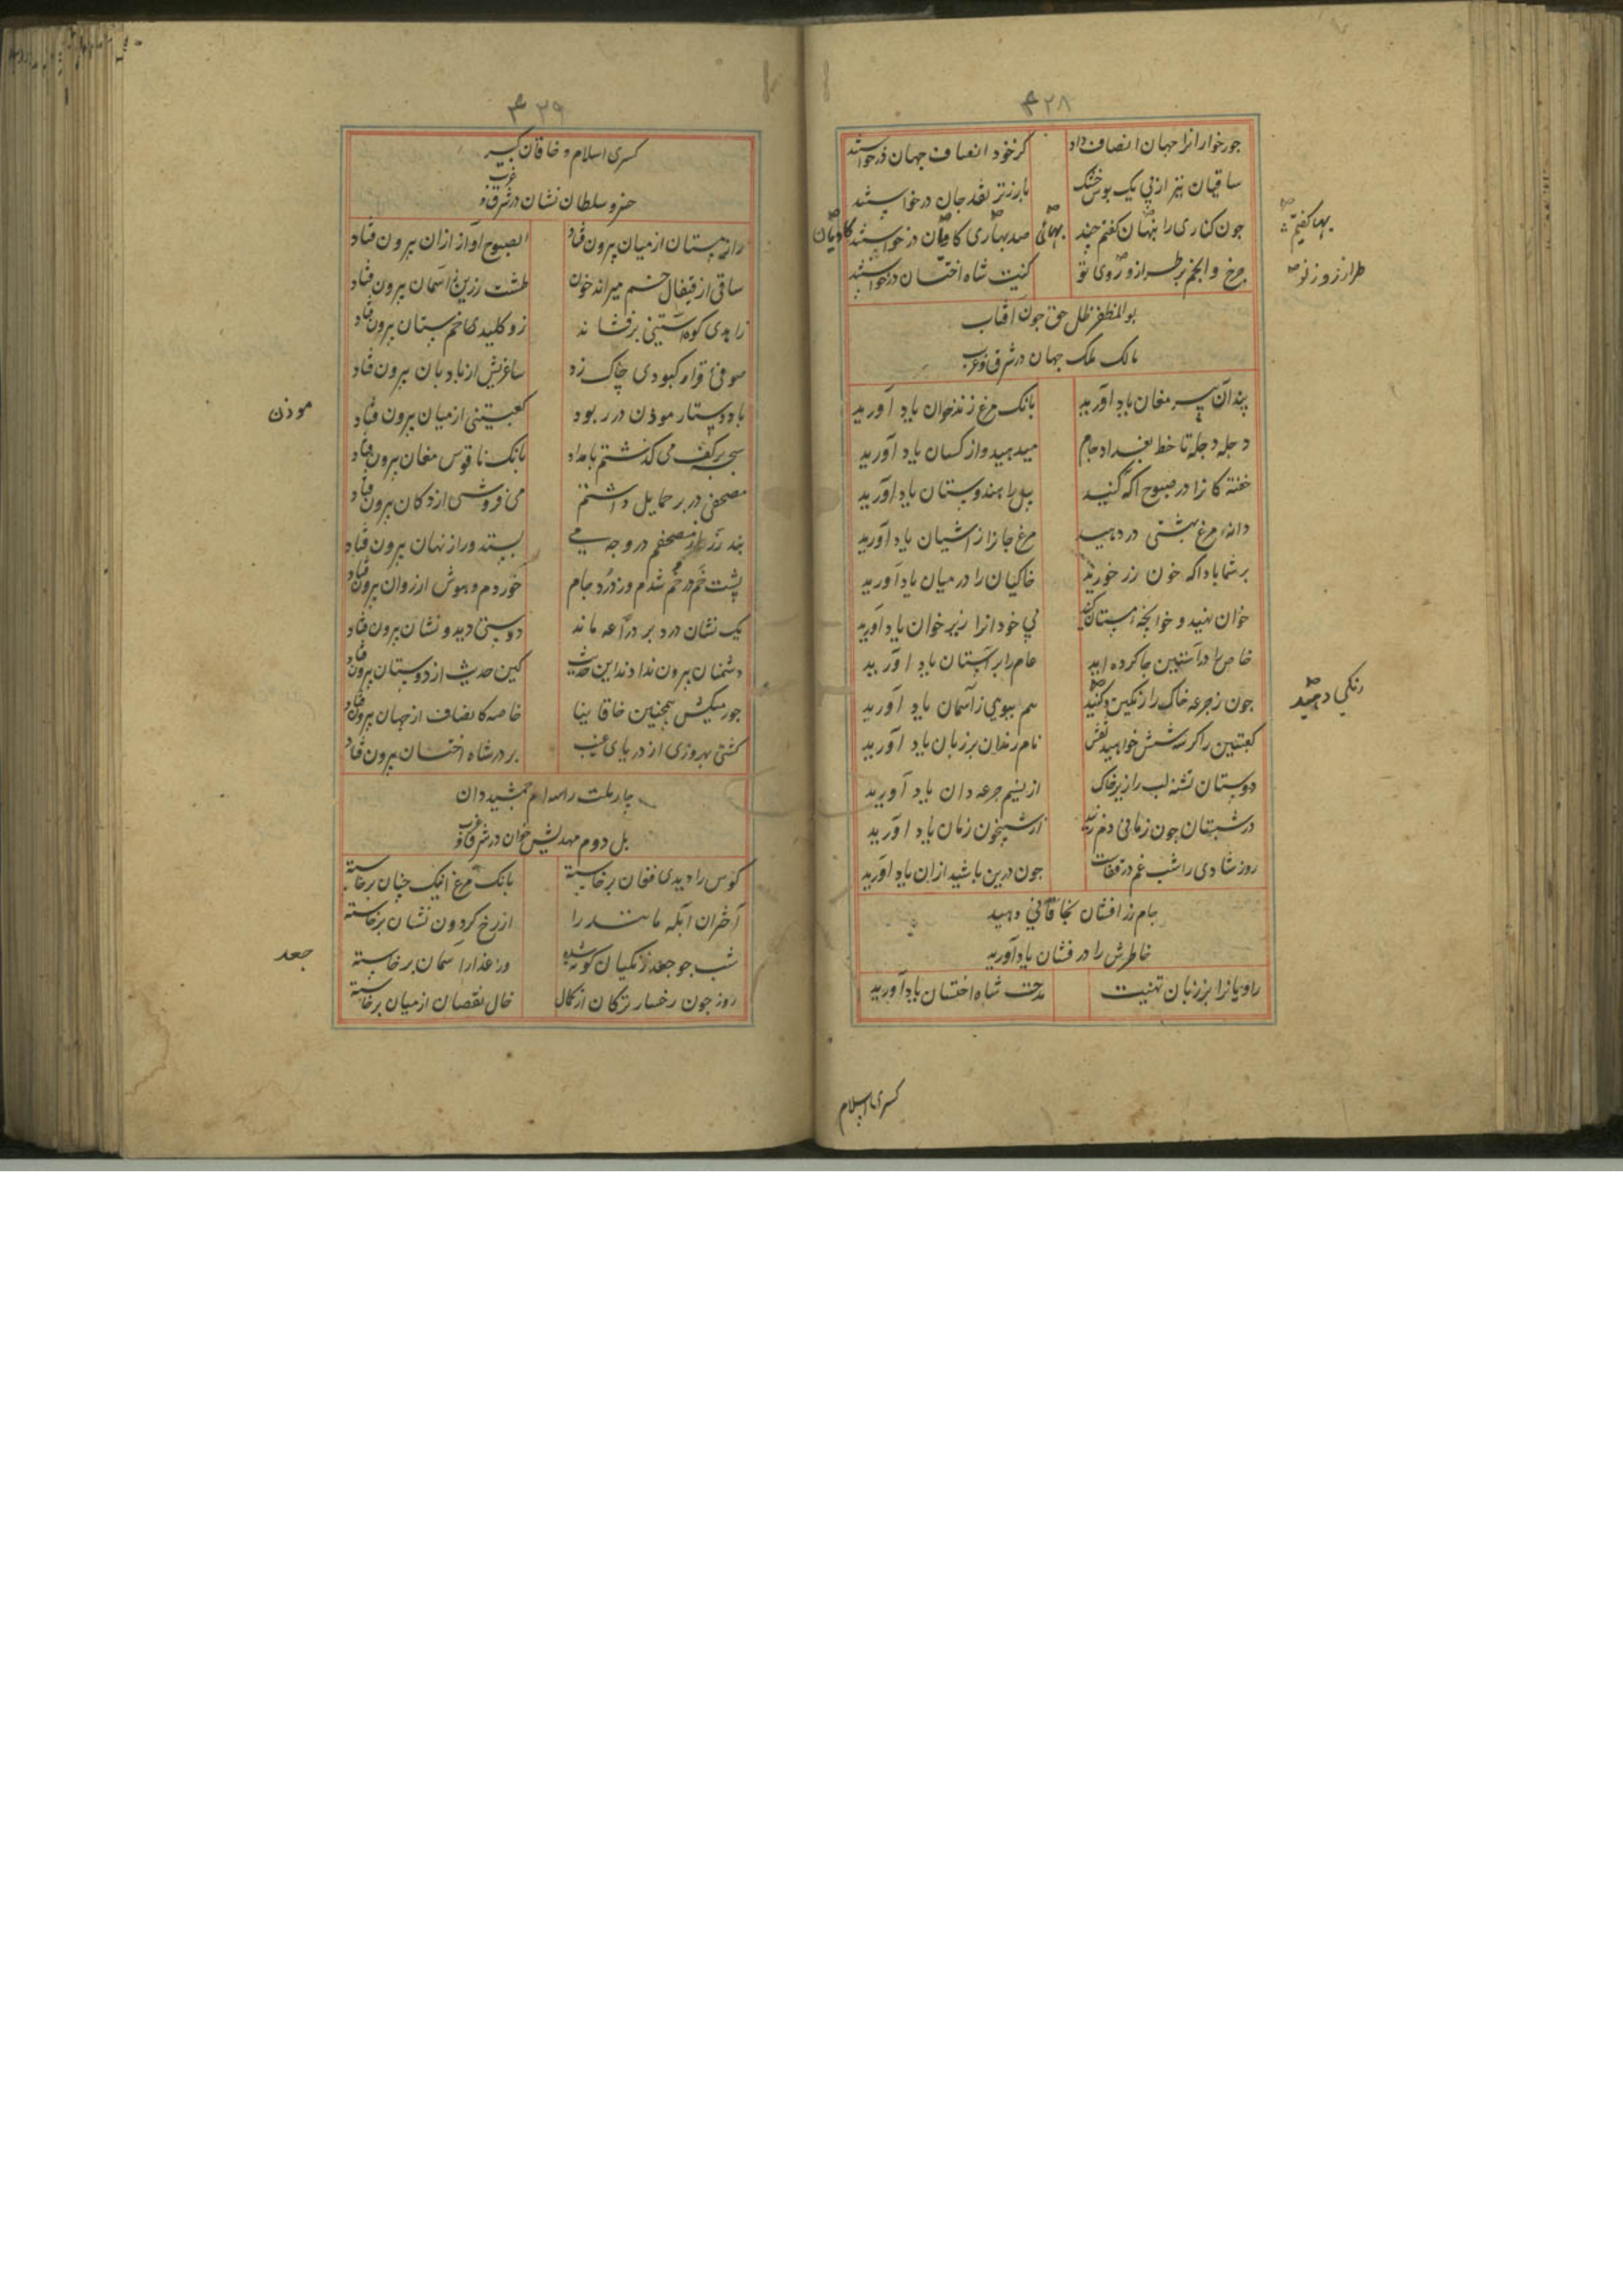 ۴۲۸
جورخوارانرا جهان انصاف داد
کز خود انصاف جهان درخواستند
ساقیان نیز از پی یک بوس خشک
بارزتر نقد جان درخواستند
جون کناری را بنهان کفتم جند
بهائی
صد بهاری کاویان درخواستند
کاویان
بها کفتم
جرخ و انجم بر طراز و روی تو
کنیت شاه اخستان درخواستند
طراز زور نو
بوالمظفر ظل حق جون آفتاب
مالک ملک جهان در شرق و غرب
پند آن پیر مغان یاد آورید
بانک مرغ زندخوان یاد آورید
دجله دجله تا خط بغداد جام
میدهید و از کسان یاد آورید
خفته کانرا در صبوح آکه کنید
پیل را هندوستان یاد آورید
دانه مرغ بهشتی در دهید
مرغ جانرا ز آشیان یاد آورید
بر شما بادا که خون رز خورید
خاکیان را در میان یاد آورید
خوان نهید و خوانجه مستان کنید
بی خودانرا زیر خوان یاد آورید
خاص را در آستین جا کرده اید
عام را بر آستان یاد آورید
جون ز جرعه خاک را رنکین کنید
هم ببویی ز آسمان یاد آورید
رنکی دهید
کعبتین را کر سه شش خواهید نقش
نام رندان بر زبان یاد آورید
دوستان تشنه لب را زیر خاک
از نسیم جرعه دان یاد آورید
در شبستان جون زمانی دم زنید
از شبیخون زمان یاد آورید
روز شادی را شب غم در قفاست
جون درین باشید ازان یاد آورید
جام زر افشان بخاقانی دهید
خاطرش را در فشان یاد آورید
راویانرا بر زبان تهنیت
مدحت شاه اخستان یاد آورید
کسری اسلام
۴۲۹
کسری اسلام و خاقان کبیر
خسرو سلطان نشان در شرق و غرب
راز مستان از میان بیرون فتاد
الصبوح آواز ازان بیرون فتاد
ساقی از قیفال خم میراند خون
طشت زرین ز آسمان بیرون فتاد
زاهدی کوه آستینی برفشاند
زو کلیدی خمستان بیرون فتاد
صوفئ قواره کبودی چاک زد
ساغریش از بادبان بیرون فتاد
باد دستار موذن در ربود
کعبتینی از میان بیرون فتاد
موذن
سبحه بر کف می کذشتم بامداد
بانک ناقوس مغان بیرون فتاد
مصحفی در بر حمایل داشتم
می فروشی از دکان بیرون فتاد
بند زر از مصحفم در وجه می
بستد و راز نهان بیرون فتاد
پشت خم در خم شدم وز درد جام
خوردم و هوش از روان بیرون فتاد
یک نشان درد بر دراعه ماند
دوستی دید و نشان بیرون فتاد
دشمنان بیرون ندادند این حدیث
کین حدیث از دوستان بیرون فتاد
جور میکش همچنین خاقانیا
خاصه کانصاف از جهان بیرون فتاد
کشتی بهروزی از دریای غیب
بر در شاه اخستان بیرون فتاد
جار ملت را جمشید دان
بل دوم مهدیش خوان در شرق و غرب
کوس را دیدی فغان برخاسته
بانک مرغ اینک چنان برخاسته
اختران آبله مانند را
از رخ کردون نشان برخاسته
شب جو جعد زنکیان کوته شده
وز عذار آسمان برخاسته
جعد
روز جون رخسار ترکان از کمال
خال نقصان از میان برخاسته